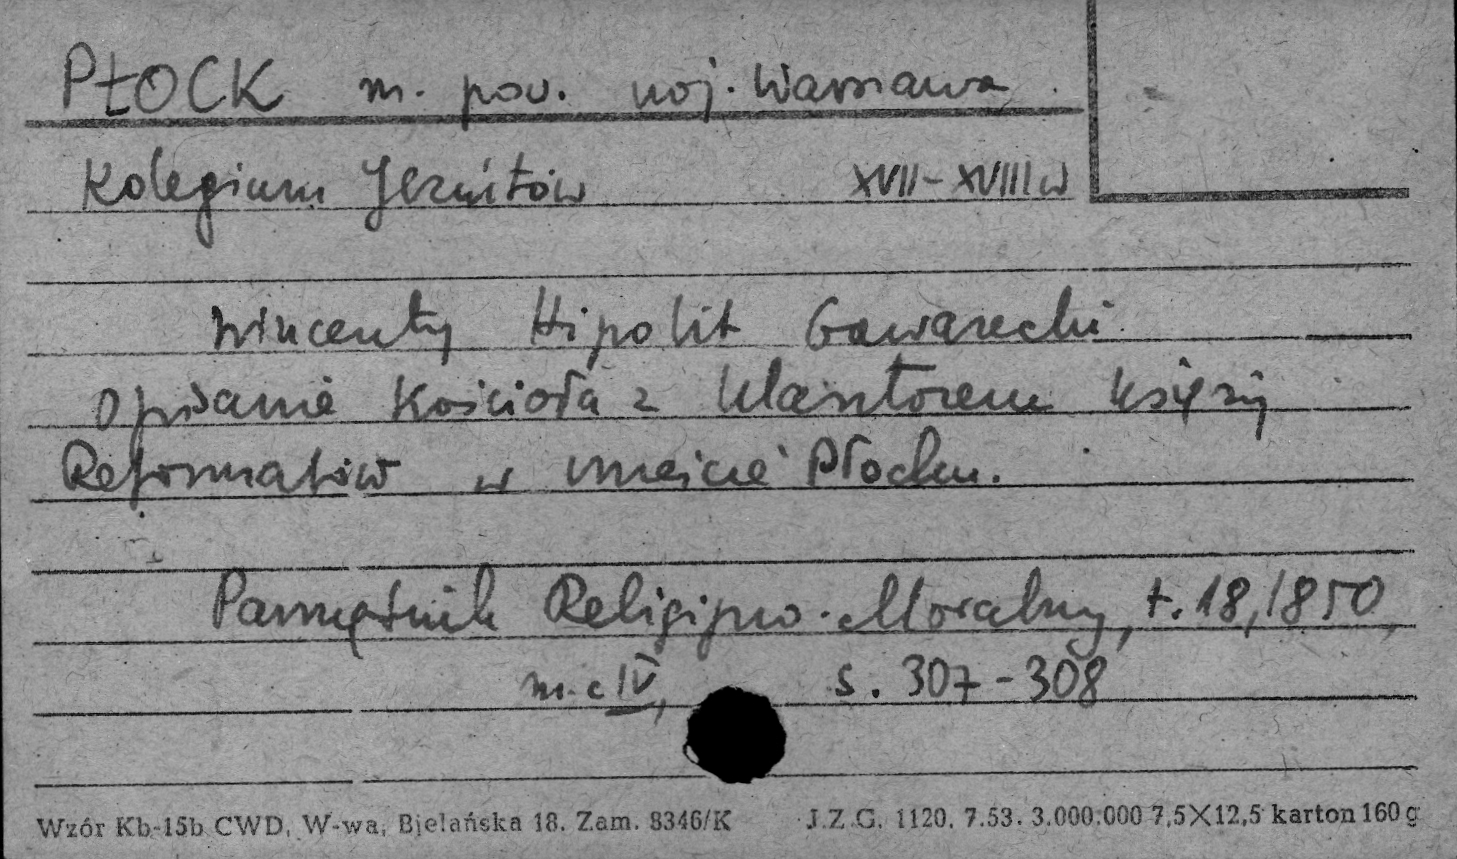 PŁOCK m. pow. woj. Warszawa
Kolegium Jezuitów XVII-XVIII w
Wincenty Hipolit Gawarecki
Opisanie Kościoła z klasztorem księży
Reformatów w mieście Płocku.
Pamiętnik Religijno-Moralny, t. 18, 1850,
m-c IV, s. 307-308
Wzór Kb-15b CWD, W-wa, Bielańska 18. Zam. 8346/K J.Z.G. 1120. 7.53. 3.000.000 7,5X12,5 karton 160 g